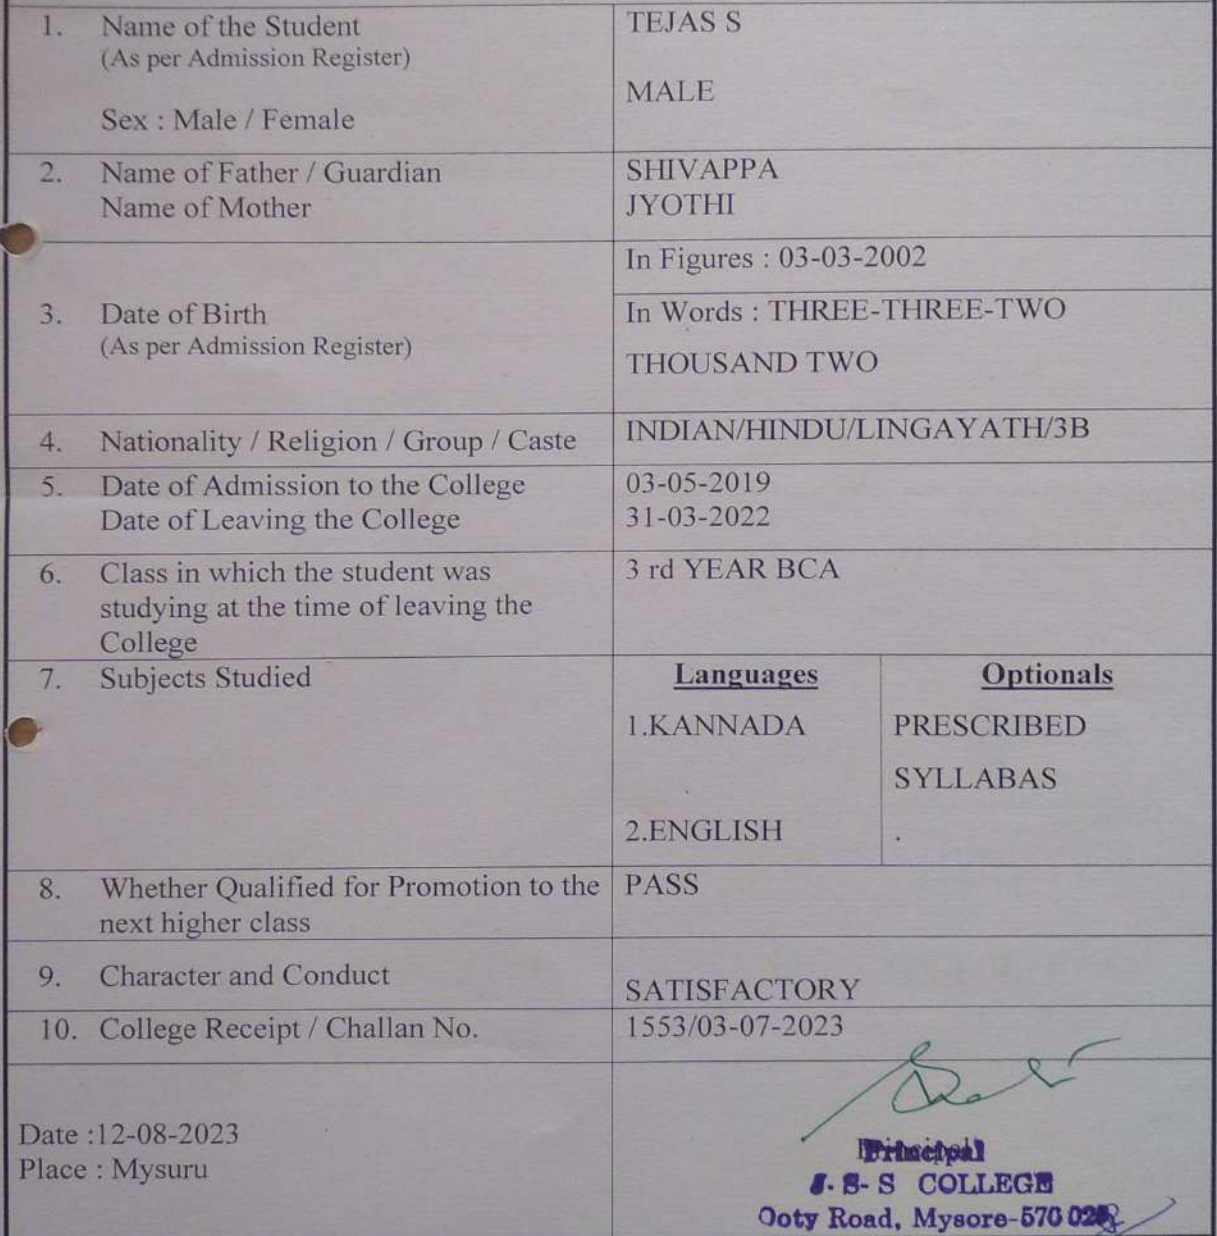 1. Name of the Student
(As per Admission Register)
TEJAS S
Sex : Male / Female
MALE
2. Name of Father / Guardian
SHIVAPPA
Name of Mother
JYOTHI
3. Date of Birth
(As per Admission Register)
In Figures : 03-03-2002
In Words : THREE-THREE-TWO
THOUSAND TWO
4. Nationality / Religion / Group / Caste
INDIAN/HINDU/LINGAYATH/3B
5. Date of Admission to the College
03-05-2019
Date of Leaving the College
31-03-2022
6. Class in which the student was
studying at the time of leaving the
College
3 rd YEAR BCA
7. Subjects Studied
Languages
1.KANNADA
2.ENGLISH
Optionals
PRESCRIBED
SYLLABAS
.
8. Whether Qualified for Promotion to the
next higher class
PASS
9. Character and Conduct
SATISFACTORY
10. College Receipt / Challan No.
1553/03-07-2023
Date :12-08-2023
Place : Mysuru
Principal
J. S- S COLLEGE
Ooty Road, Mysore-570